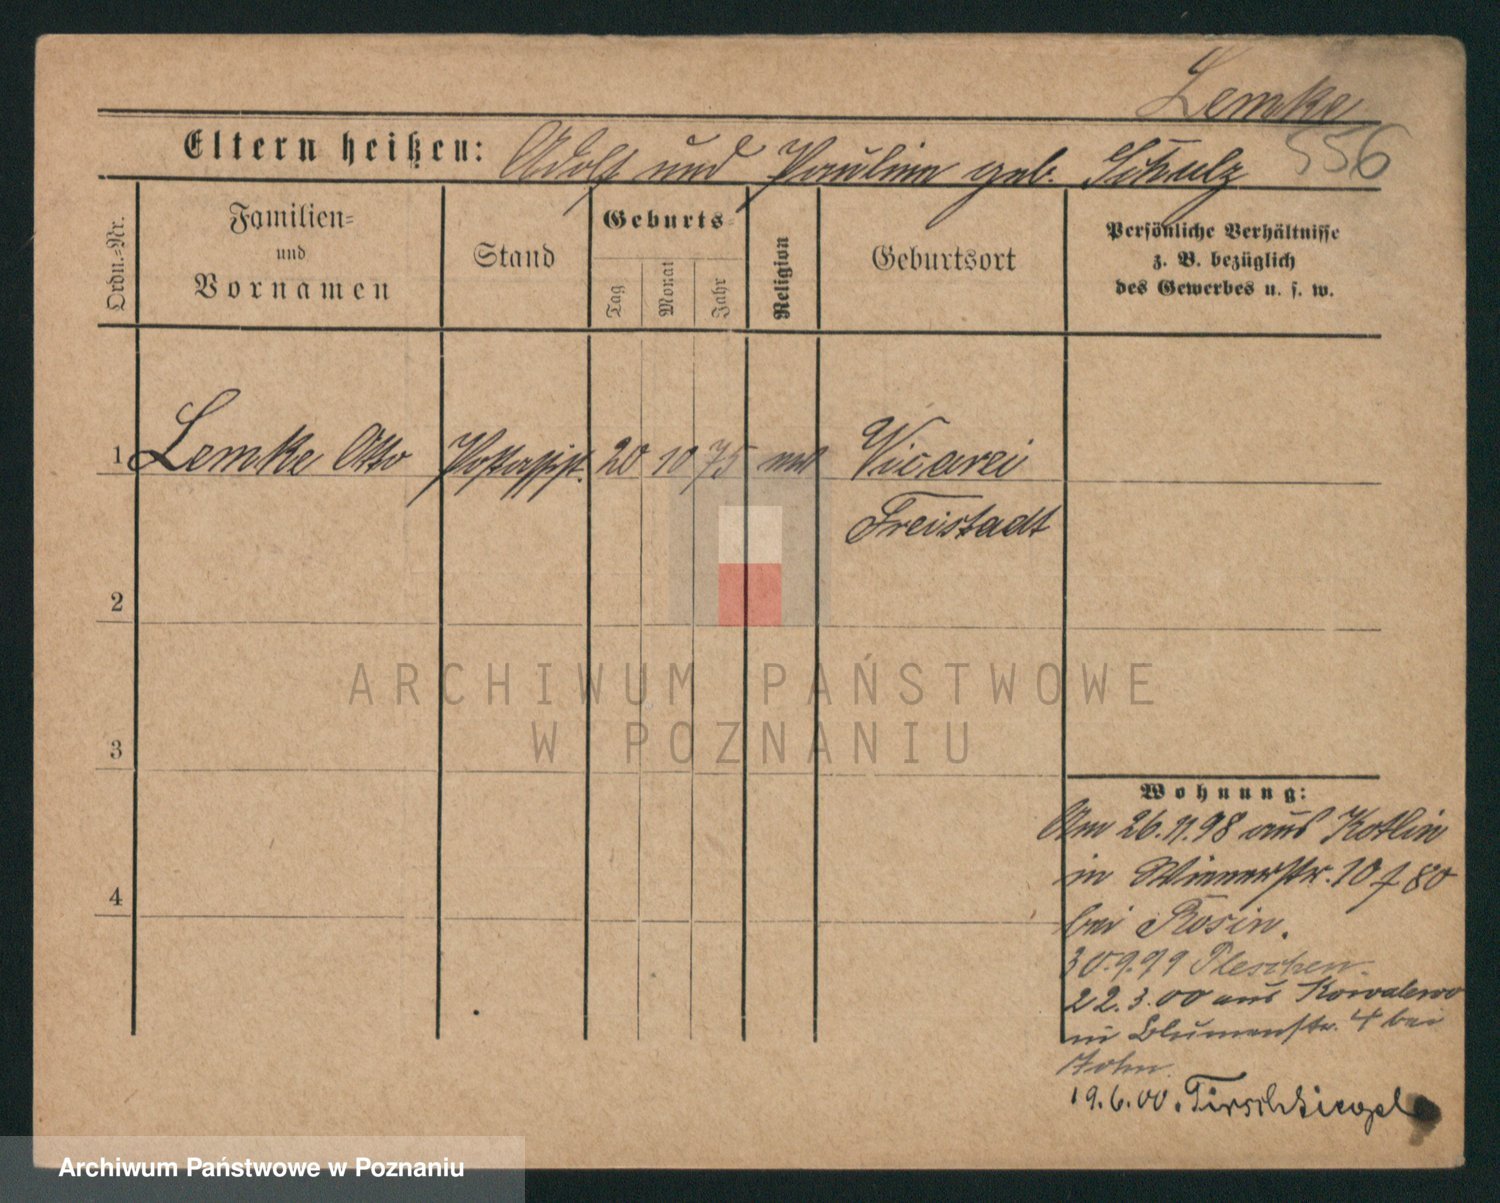 Lemke
556
Eltern heißen: Adolf und Pauline geb. Schulz
Ordn.-Nr.
Familien-
und
Vornamen
Stand
Geburts-
Tag
Monat
Jahr
Religion
Geburtsort
Persönliche Verhältnisse
z. B. bezüglich
des Gewerbes u. s. w.
1 Lemke Otto Postassist. 20 10 75 Vicarei
Freistadt
2
3
4
Wohnung:
Am 26.11.98 aus Kotlin
in Wienerstr. 10 f 80
bei Rosin.
30.9.99 Pleschen.
22.3.00 aus Kowalewo
in Blumenstr. 4 bei
John.
19.6.00. Tirschtiegel
ARCHIWUM PAŃSTWOWE
W POZNANIU
Archiwum Państwowe w Poznaniu